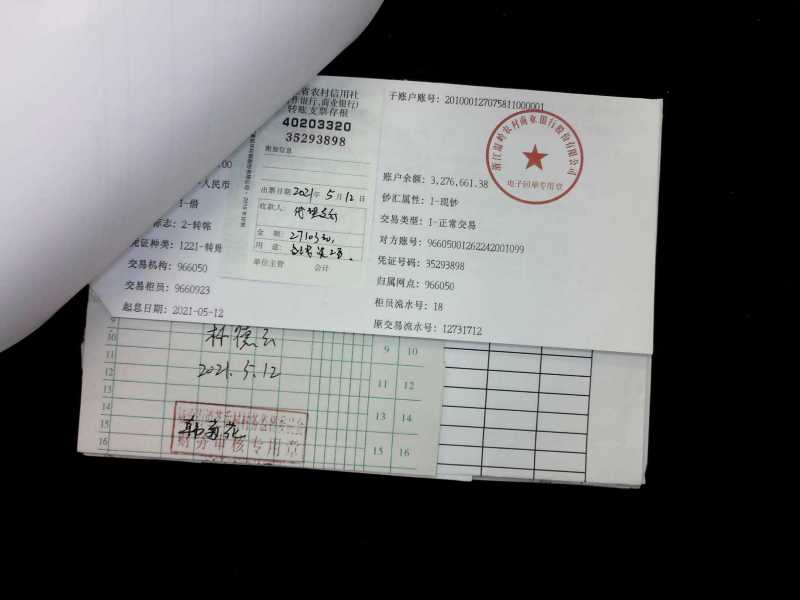 省农村信用社
作银行、商业银行)
转账支票存根
40203320
35293898
附加信息
出票日期 2021年 5月 12日
收款人:
金 额:
用 途:
单位主管 会计
子账户账号: 201000127075811000001
浙江温岭农村商业银行股份有限公司
电子回单专用章
账户余额: 3,276,661.38
钞汇属性: 1-现钞
交易类型: 1-正常交易
对方账号: 96605001262242001099
凭证号码: 35293898
归属网点: 966050
柜员流水号: 18
原交易流水号: 12731712
.00
-人民币
1-借
标志: 2-转帐
凭证种类: 1221-转账
交易机构: 966050
交易柜员: 9660923
起息日期: 2021-05-12
2021.5.12
财务审核专用章
9
10
11
12
13
14
15
16
9 10
11 12
13 14
15 16